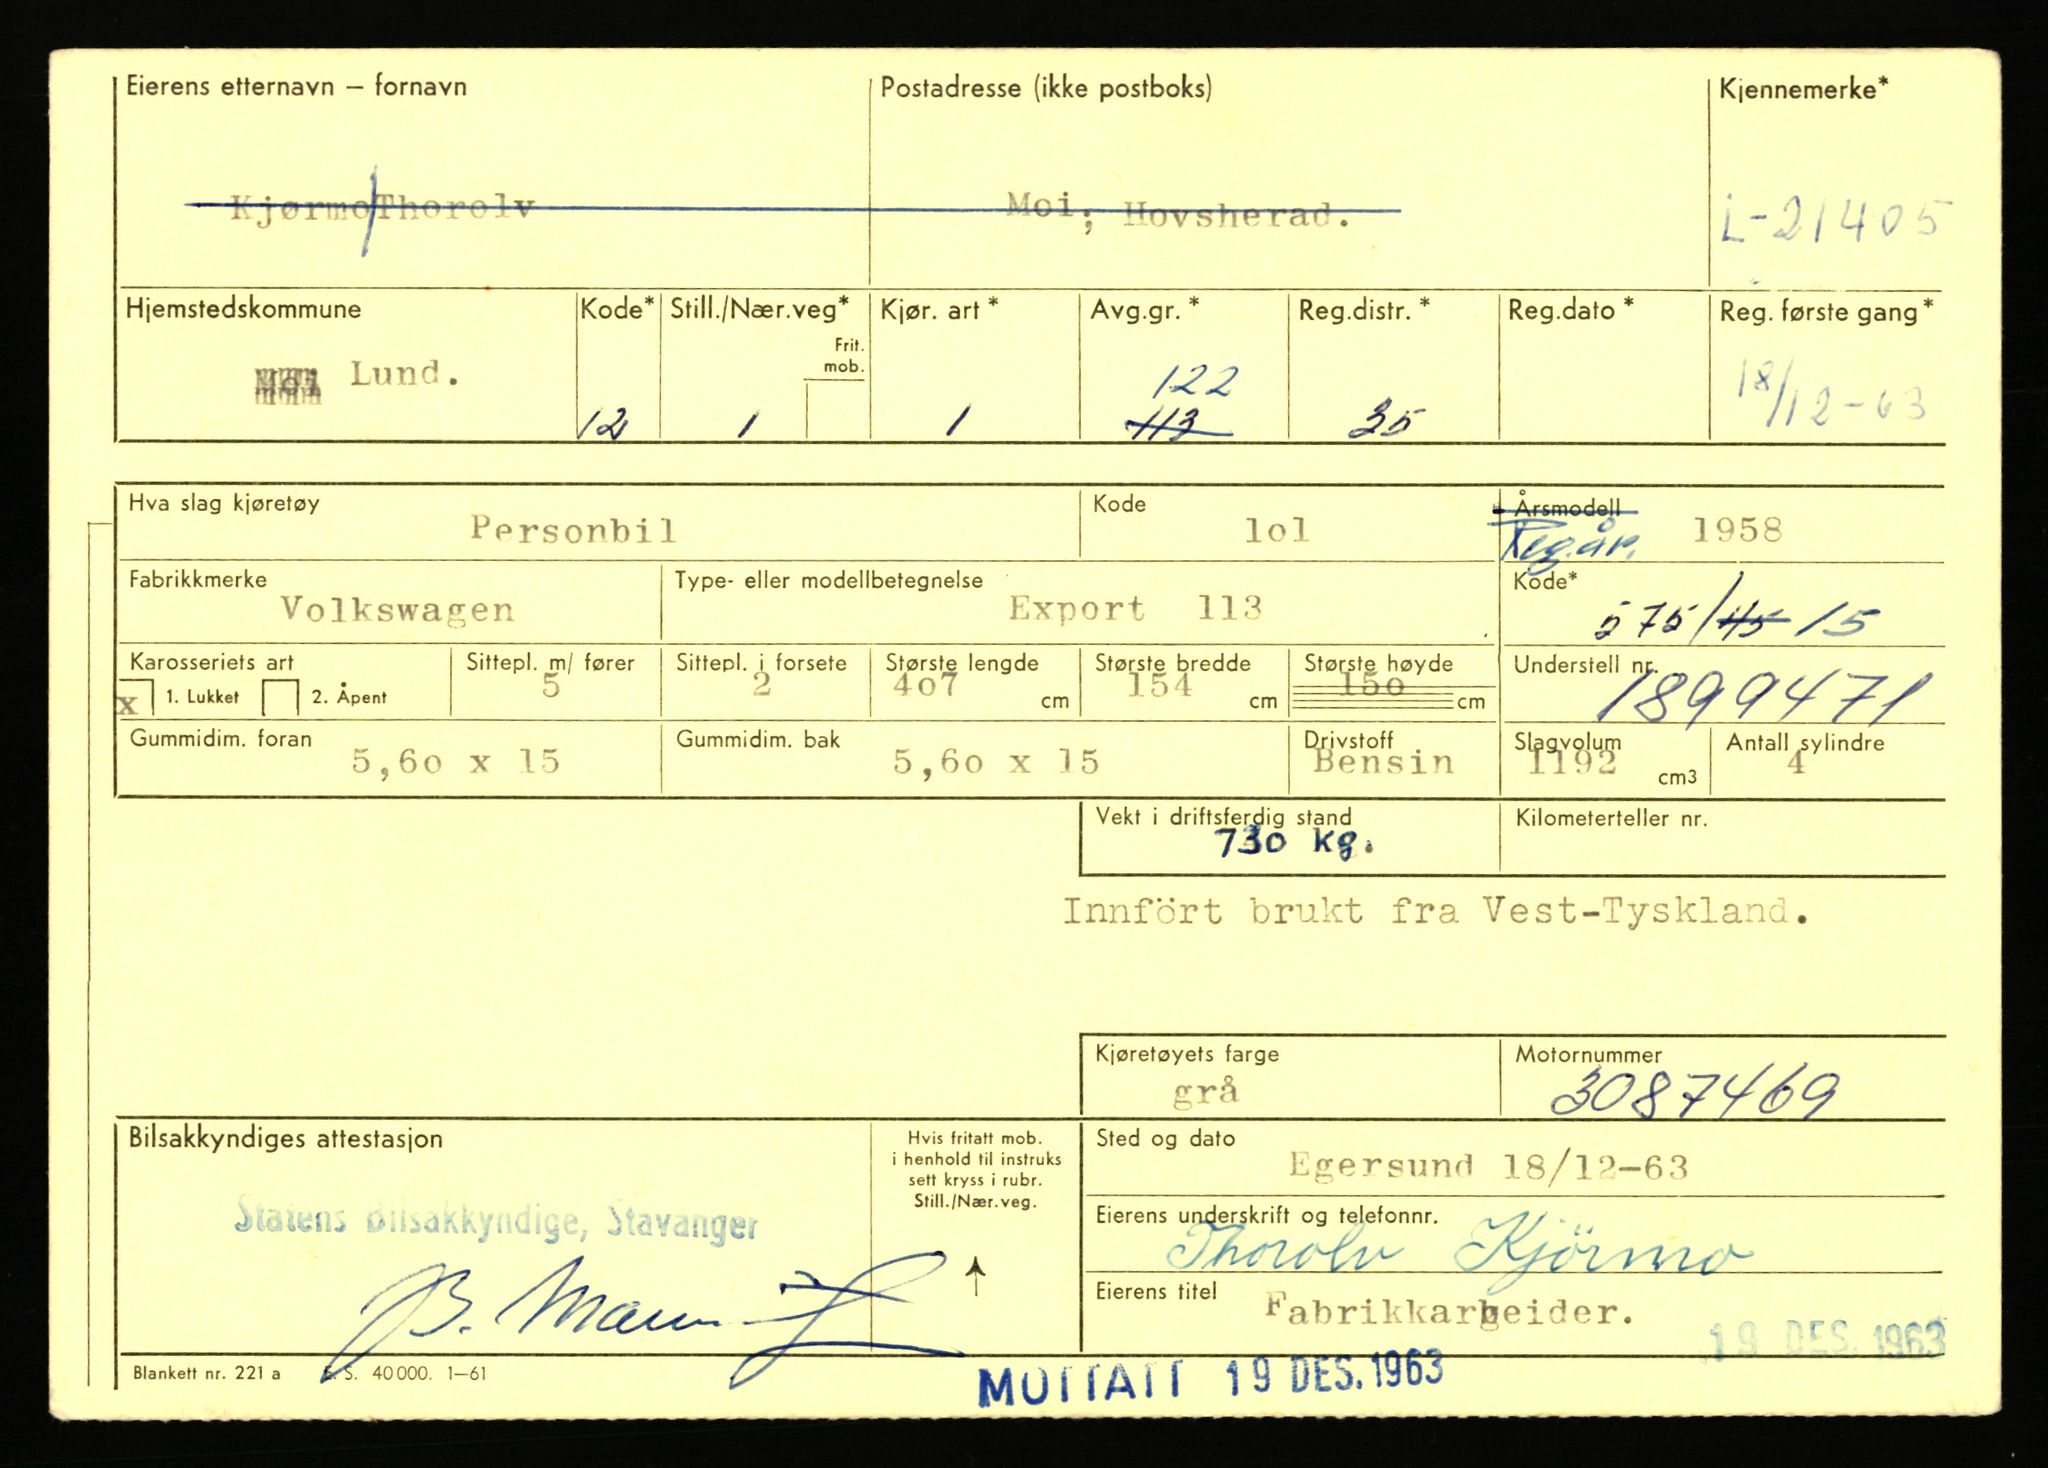 Eierens etternavn – fornavn Postadresse (ikke postboks) Kjennemerke*
Kjørmo/Thorolv Moi; Hovsherad. L-21405
Hjemstedskommune Kode* Still./Nær.veg* Kjør. art* Avg.gr.* Reg.distr.* Reg.dato* Reg. første gang*
Frit. mob.
Moi Lund. 12 1 1 122 113 35 18/12-63
Hva slag kjøretøy Kode Årsmodell
Personbil lol Reg.år. 1958
Fabrikkmerke Type- eller modellbetegnelse Kode*
Volkswagen Export 113 575/45 15
Karosseriets art Sittepl. m/ fører Sittepl. i forsete Største lengde Største bredde Største høyde Understell nr.
x 1. Lukket 2. Åpent 5 2 4o7 cm 154 cm 15o cm 1899471
Gummidim. foran Gummidim. bak Drivstoff Slagvolum Antall sylindre
5,6o x 15 5,6o x 15 Bensin 1192 cm3 4
Vekt i driftsferdig stand Kilometerteller nr.
730 kg.
Innfört brukt fra Vest-Tyskland.
Kjøretøyets farge Motornummer
grå 3087469
Bilsakkyndiges attestasjon
Hvis fritatt mob.
i henhold til instruks
sett kryss i rubr.
Still./Nær.veg.
Sted og dato
Egersund 18/12-63
Statens Bilsakkyndige, Stavanger
Eierens underskrift og telefonnr.
Thorolv Kjörmo
Eierens titel Fabrikkarbeider.
19 DES. 1963
Blankett nr. 221 a E. S. 40 000. 1–61
MOTTATT 19 DES. 1963